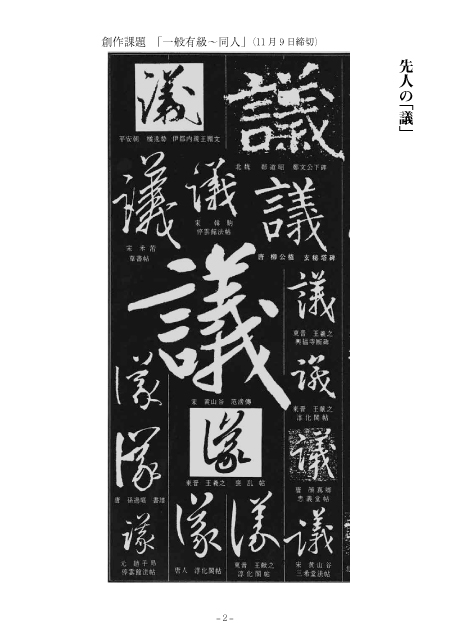 創作課題　「一般有級～同人」(11月9日締切)
先人の「議」
議
平安朝　橘逸勢　伊都内親王願文
議
北魏　鄭道昭　鄭文公下碑
議
宋　米芾
草書帖
議
停雲館法帖
議
唐　柳公権　玄秘塔碑
議
宋　黄山谷　范滂傳
議
東晋　王羲之
興福寺断碑
議
東晋　王獻之
淳化閣帖
議
議
唐　孫過庭　書譜
議
東晋　王羲之
議
唐　顔真卿
忠義堂帖
議
元　趙子昂
停雲館法帖
議
唐人　淳化閣帖
議
東晋　王獻之
淳化閣帖
議
宋　黄山谷
三希堂法帖
- 2 -